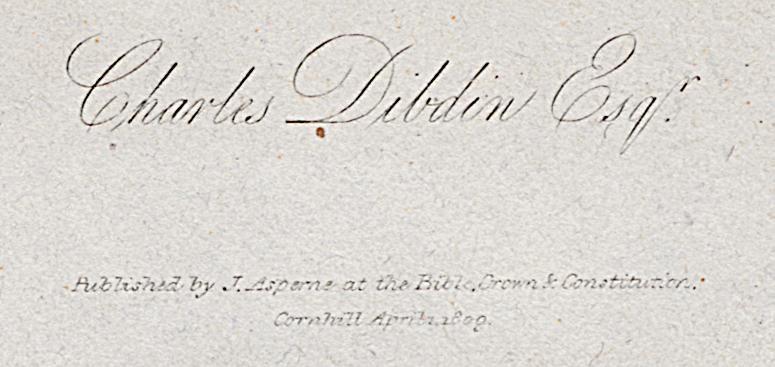 Charles Dibdin Esqr.
Published by J. Asperne at the Bible, Crown & Constitution.
Cornhill April 1, 1809.